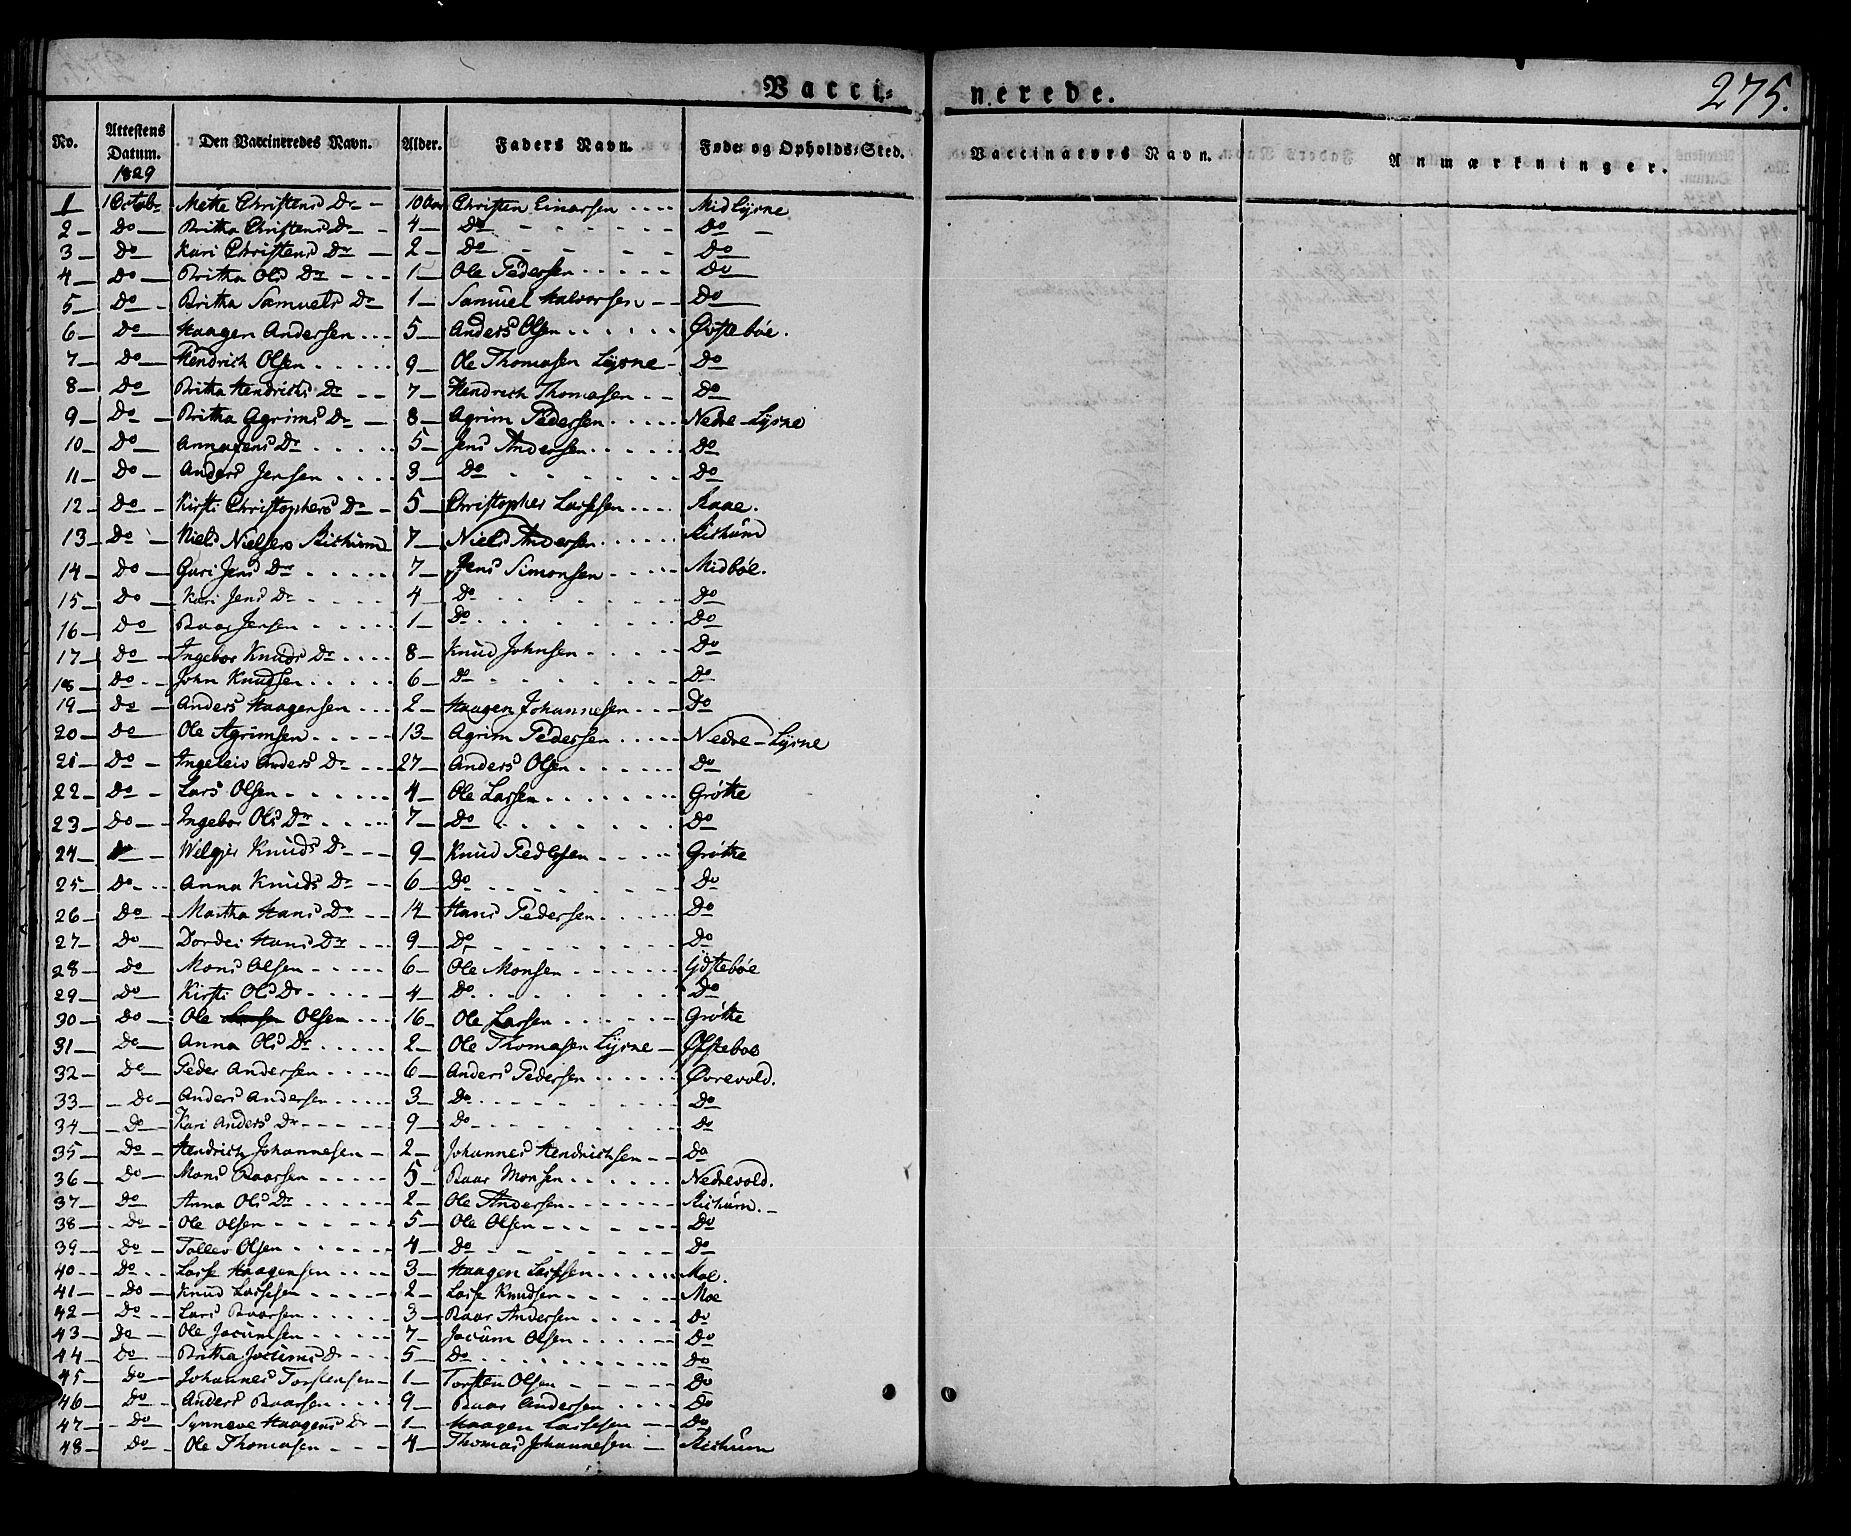 Vacci=
nerede.
275.
No. Attestens Datum. 1829 Den Vaccineredes Navn. Alder. Faders Navn. Føde og Opholds=Sted. Vaccinateurs Navn. Anmærkninger.
1 1 Octobr Mette Christens Dr 10 Aar Christen Einarsen Mid Lÿsne
2 Do Britha Christens Dr 4 Do Do
3 Do Kari Christens Dr 2 Do Do
4 Do Britha Ols Dr 1 Ole Pedersen Do
5 Do Britha Samuels Dr 1 Samuel Halvorsen Do
6 Do Haagen Andersen 5 Anders Olsen Øvstebøe.
7 Do Hendrich Olsen 9 Ole Thomasen Lÿsne Do
8 Do Britha Hendrichs Dr 7 Hendrich Thomasen Do
9 Do Britha Agrims Dr 8 Agrim Pedersen Nedre-Lÿsne
10 Do Anna Jens Dr 5 Jens Andersen Do
11 Do Anders Jensen 3 Do Do
12 Do Kirsti Christophers Dr 5 Christopher Larssen
13 Do Niels Nielsen Richüm 7 Niels Andersen Richüm
14 Do Guri Jens Dr 7 Jens Simonsen Midbøe.
15 Do Kari Jens Dr 4 Do Do
16 Do Baar Jensen 1 Do Do
17 Do Ingebor Knuds Dr 8 Knüd Johnsen Do
18 Do John Knudsen 6 Do Do
19 Do Anders Haagensen 2 Haagen Johannesen Do
20 Do Ole Agrimsen 13 Agrim Pedersen Nedre-Lÿsne
21 Do Ingeleiv Anders Dr 27 Anders Olsen Do
22 Do Lars Olsen 4 Ole Larsen Grøthe
23 Do Ingebor Ols Dr 7 Do Do
24 Do Knüds Dr 9 Knüd Pedersen Grøthe
25 Do Anna Knüds Dr 6 Do Do
26 Do Martha Hans Dr 14 Hans Pedersen Do
27 Do Dordei Hans Dr 9 Do Do
28 Do Mons Olsen 6 Ole Monsen
29 Do Kirsti Ols Dr 4 Do Do
30 Do Ole Larsen Olsen 16 Ole Larsen Grøthe
31 Do Anna Ols Dr 2 Ole Thomasen Lÿsne Øfsteboe
32 Do Peder Andersen 6 Anders Pedersen Øvrevold.
33 Do Anders Andersen 3 Do Do
34 Do Kari Anders Dr 9 Do Do
35 Do Hendrich Johannesen 2 Johannes Hendrichsen Do
36 Do Mons Baarsen 5 Baar Monsen Nedrevold.
37 Do Anna Ols Dr 2 Ole Andersen Richüm.
38 Do Ole Olsen 5 Ole Olsen Do
39 Do Tollev Olsen 4 Do Do
40 Do Lasse Haagensen 3 Haagen Lassesen Moe.
41 Do Knud Lassesen 2 Lasse Knudsen Moe
42 Do Lars Baarsen 3 Baar Andersen Do
43 Do Ole Jocümsen 7 Jocüm Olsen Do
44 Do Britha Jocüms Dr 5 Do Do
45 Do Johannes Torstensen 1 Torsten Olsen Do
46 Do Anders Baarsen 9 Baar Andersen Do
47 Do Synneve Haagens Dr 1 Haagen Lassesen Do
48 Do Ole Thomasen 4 Thomas Johannesen Richüm